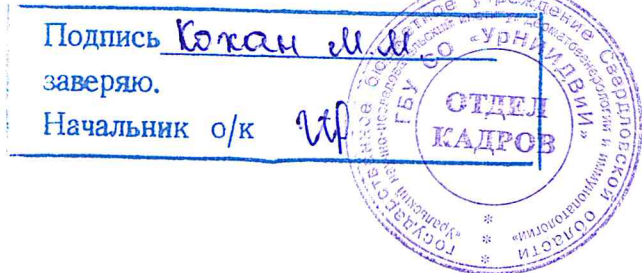 Подпись Кохан М.М
заверяю.
Начальник о/к
Государственное бюджетное учреждение Свердловской области
«Уральский научно-исследовательский институт дерматовенерологии и иммунопатологии»
ГБУ СО «УрНИИДВиИ»
ОТДЕЛ
КАДРОВ